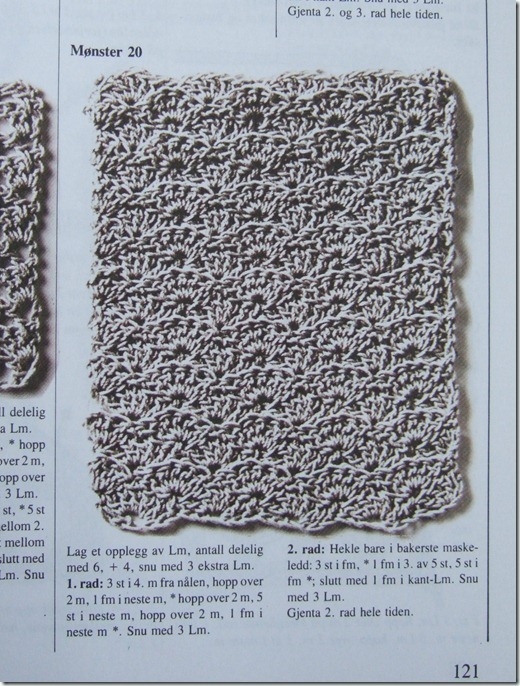 Gjenta 2. og 3. rad hele tiden.
Mønster 20
delelig
a Lm.
, * hopp
over 2 m,
opp over
3 Lm.
st, * 5 st
mellom 2.
mellom
slutt med
Lm. Snu
Lag et opplegg av Lm, antall delelig
med 6, + 4, snu med 3 ekstra Lm.
1. rad: 3 st i 4. m fra nålen, hopp over
2 m, 1 fm i neste m, * hopp over 2 m, 5
st i neste m, hopp over 2 m, 1 fm i
neste m *. Snu med 3 Lm.
2. rad: Hekle bare i bakerste maske-
ledd: 3 st i fm, * 1 fm i 3. av 5 st, 5 st i
fm *; slutt med 1 fm i kant-Lm. Snu
med 3 Lm.
Gjenta 2. rad hele tiden.
121